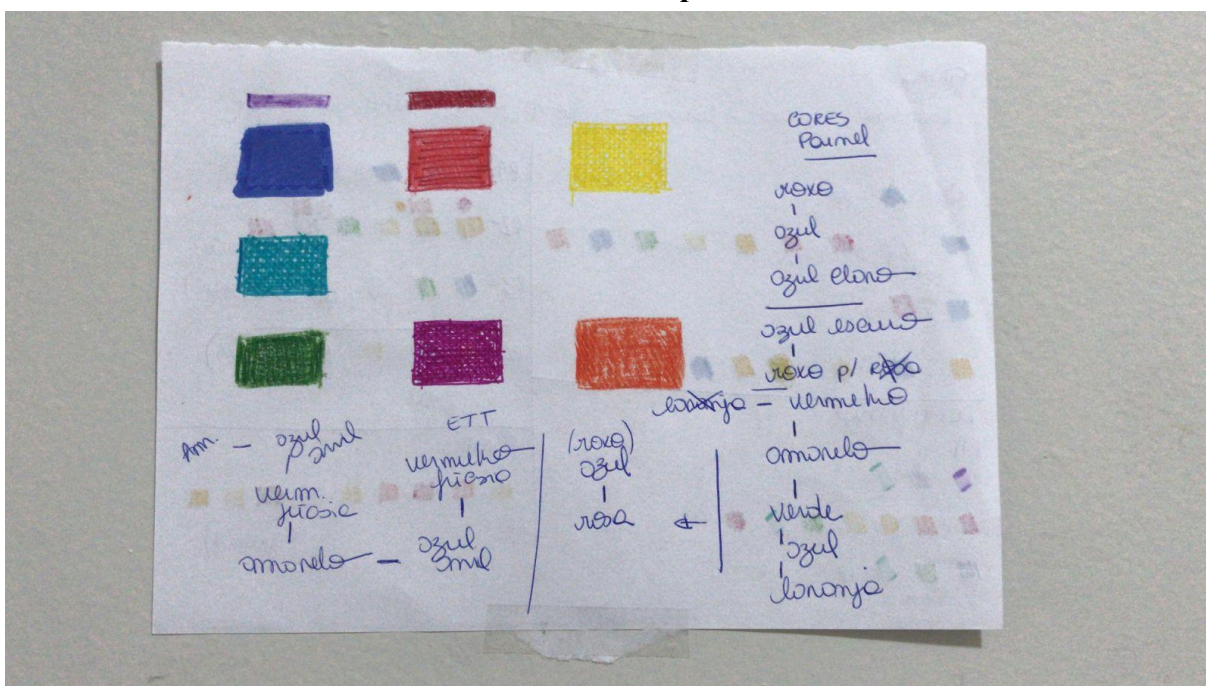 CORES
Painel
roxo
azul
azul claro
azul escuro
roxo p/ rosa
laranja - vermelho
amarelo
verde
azul
laranja
Am. - azul
anil
verm.
fúcsia
amarelo - azul
anil
ETT
vermelho
fúcsia
(roxo)
azul
rosa